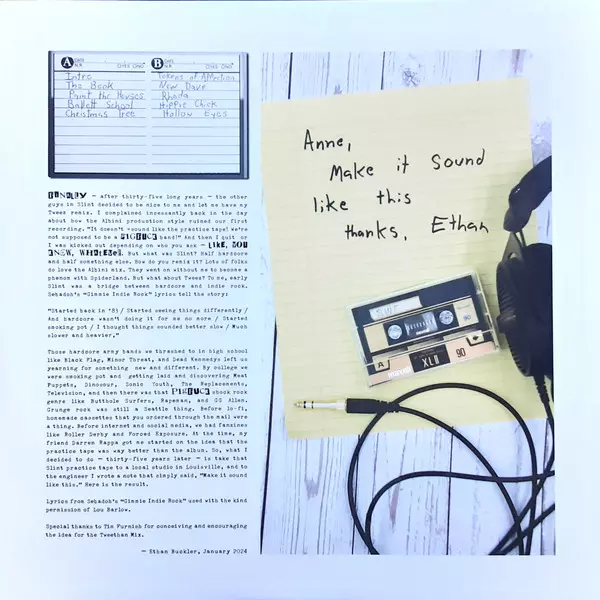 A DATE N.R. ○YES ○NO
B DATE N.R. ○YES ○NO
Intro
The Book
Paint the Houses
Ballett School
Christmas Tree
Tokens of Affection
New Dave
Rhoda
Hippie Chick
Hollow Eyes
Anne,
Make it sound
like this
thanks, Ethan
A
XLII 90
maxell
90
FINALLY — after thirty-five long years — the other
guys in Slint decided to be nice to me and let me have my
Tweez remix. I complained incessantly back in the day
about how the Albini production style ruined our first
recording. "It doesn't sound like the practice tape! we're
not supposed to be a PIGFUCK band!" And then I quit or
I was kicked out depending on who you ask — LIKE, YOU
KNEW, WHATEVER. But what was Slint? Half hardcore
and half something else. How do you remix it? Lots of folks
do love the Albini mix. They went on without me to become a
phenom with Spiderland. But what about Tweez? To me, early
Slint was a bridge between hardcore and indie rock.
Sebadoh's "Gimmie Indie Rock" lyrics tell the story:
"Started back in '83 / Started seeing things differently /
And hardcore wasn't doing it for me no more / Started
smoking pot / I thought things sounded better slow / Much
slower and heavier,"
Those hardcore army bands we thrashed to in high school
like Black Flag, Minor Threat, and Dead Kennedys left us
yearning for something new and different. By college we
were smoking pot and getting laid and discovering Meat
Puppets, Dinosaur, Sonic Youth, The Replacements,
Television, and then there was that PIGFUCK shock rock
genre like Butthole Surfers, Rapeman, and GG Allen.
Grunge rock was still a Seattle thing. Before lo-fi,
homemade cassettes that you ordered through the mail were
a thing. Before internet and social media, we had fanzines
like Roller Derby and Forced Exposure. At the time, my
friend Darren Rappa got me started on the idea that the
practice tape was way better than the album. So, what I
decided to do — thirty-five years later — is take that
Slint practice tape to a local studio in Louisville, and to
the engineer I wrote a note that simply said, "Make it sound
like this." Here is the result.
Lyrics from Sebadoh's "Gimmie Indie Rock" used with the kind
permission of Lou Barlow.
Special thanks to Tim Furnish for conceiving and encouraging
the idea for the Tweethan Mix.
— Ethan Buckler, January 2024